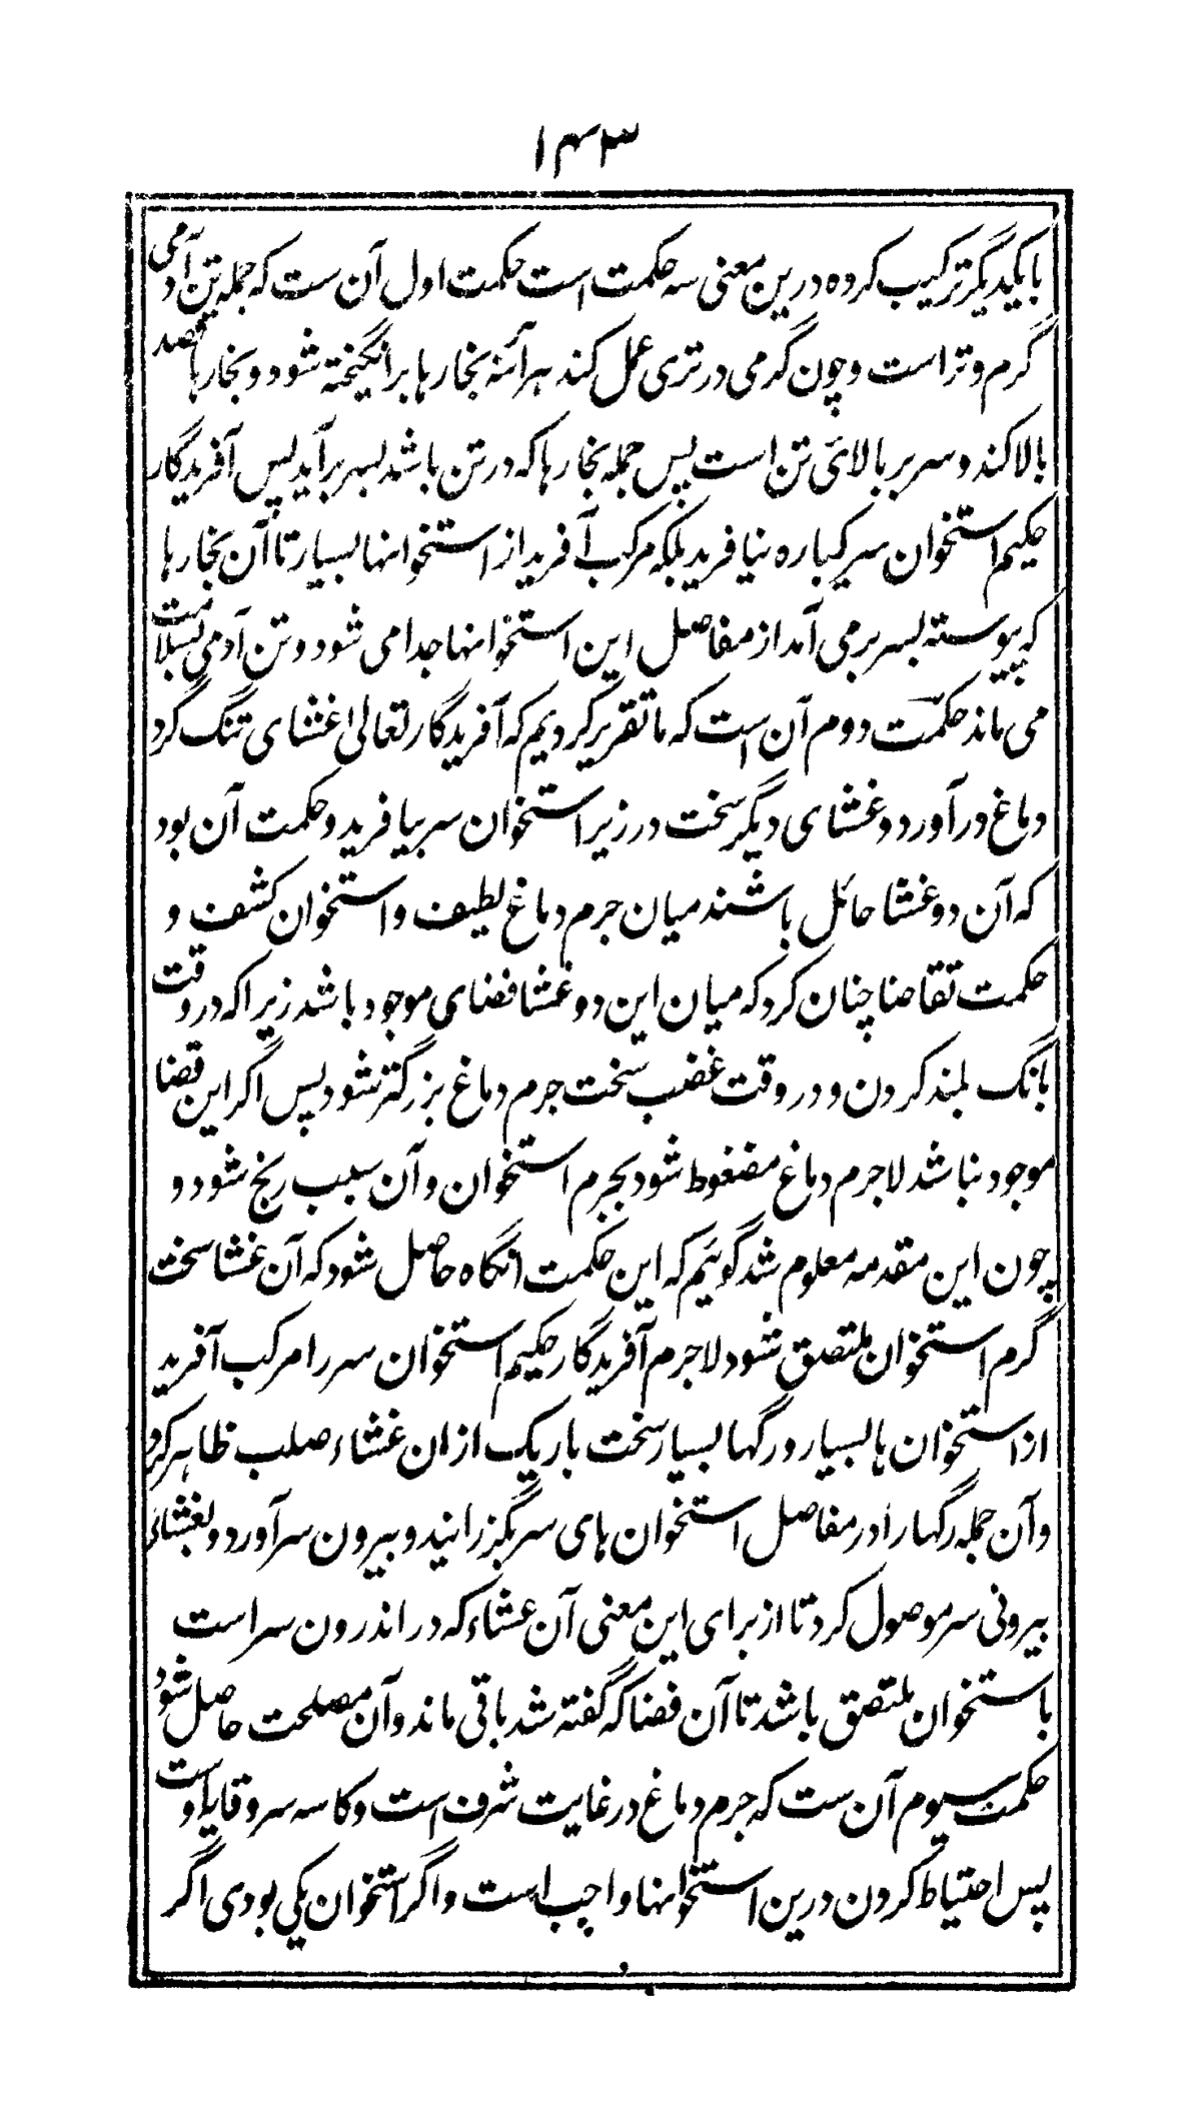 ۱۴۳
بایکدیگر ترکیب کرده درین معنی سه حکمت است حکمت اول آن ست که جمله تن آدمی
گرم و تر است و چون گرمی در تری عمل کند هر آئنه بخارها برانگیخته شود و بخارها قصد
بالا کند و سر بر بالائی تن است پس جمله بخارها که در تن باشد بسر برآید پس آفریدگار
حکیم استخوان سر یکباره نیافرید بلکه مرکب آفرید از استخوانها بسیار تا آن بخارها
که پیوسته بسر برمی آمد از مفاصل این استخوانها جدا می شود و تن آدمی بسلامت
می ماند حکمت دوم آن است که ما تقریر کردیم که آفریدگار تعالی غشای تنگ گرد
دماغ در آورد و غشای دیگر سخت در زیر استخوان سر بیافرید و حکمت آن بود
که آن دو غشا حائل باشند میان جرم دماغ لطیف و استخوان کشف و
حکمت تقاضا چنان کرد که میان این دو غشا فضای موجود باشد زیرا که در وقت
بانگ بلند کردن و در وقت غضب سخت جرم دماغ بزرگتر شود پس اگر این فضا
موجود نباشد لاجرم دماغ مضغوط شود بجرم استخوان و آن سبب رنج شود و
چون این مقدمه معلوم شد گوئیم که این حکمت انگاه حاصل شود که آن غشا سخت
گرم استخوان ملتصق شود لاجرم آفریدگار حکیم استخوان سر را مرکب آفرید
از استخوان ها بسیار و رگها بسیار سخت باریک ازان غشاء صلب ظاهر کرد
و آن جمله رگها را در مفاصل استخوان های سر بگزرانید و بیرون سر آورد و بغشائی
بیرونی سر موصول کرد تا از برای این معنی آن عشاء که در اندرون سر است
با ستخوان ملتصق باشد تا آن فضا که گفته شد باقی ماند و آن مصلحت حاصل شود
حکمت سیوم آن ست که جرم دماغ در غایت شرف است و کاسه سر وقایه اوست
پس احتیاط کردن درین استخوانها واجب است و اگر استخوان یکی بودی اگر